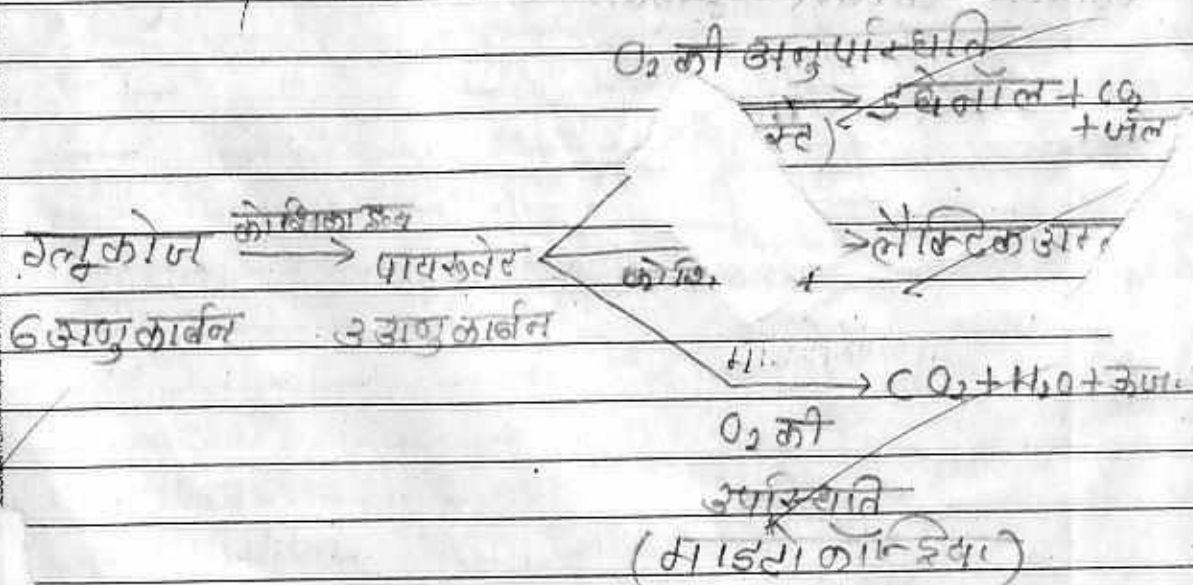 O₂ की अनुपस्थिति
इथेनॉल + CO₂
+ जल
ग्लूकोज कोशिका द्रव्य → पायरुवेट
→ लैक्टिक
6 अणु कार्बन 3 अणु कार्बन
→ CO₂ + H₂O +
O₂ की
उपस्थिति
(माइटोकॉन्ड्रिया)